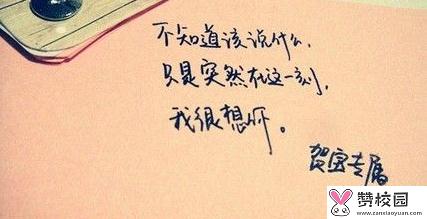 不知道该说什么,
只是突然在这一刻,
我很想你。
贺宝专属
赞校园
www.zanxiaoyuan.com